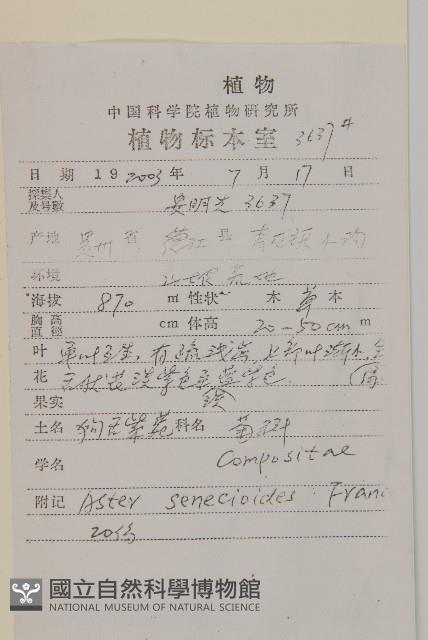 植物
中国科学院植物研究所
植物标本室 3637#
日期 19 2003 年 7 月 17 日
採集人及号数 吴明先 3637
产地 贵州 省 德江 县 青
环境 山坡荒地
海拔 870 m 性状 木 草 本
胸高直徑 cm 体高 20-50cm m
叶 单叶互生, 有疏浅齿, 上部叶渐小 全
花 舌状花淡紫色 紫色. 缘
果实
土名 狗舌紫菀 科名 菊科
学名 Compositae
附记 Aster senecioides Franc
20份
國立自然科學博物館
NATIONAL MUSEUM OF NATURAL SCIENCE